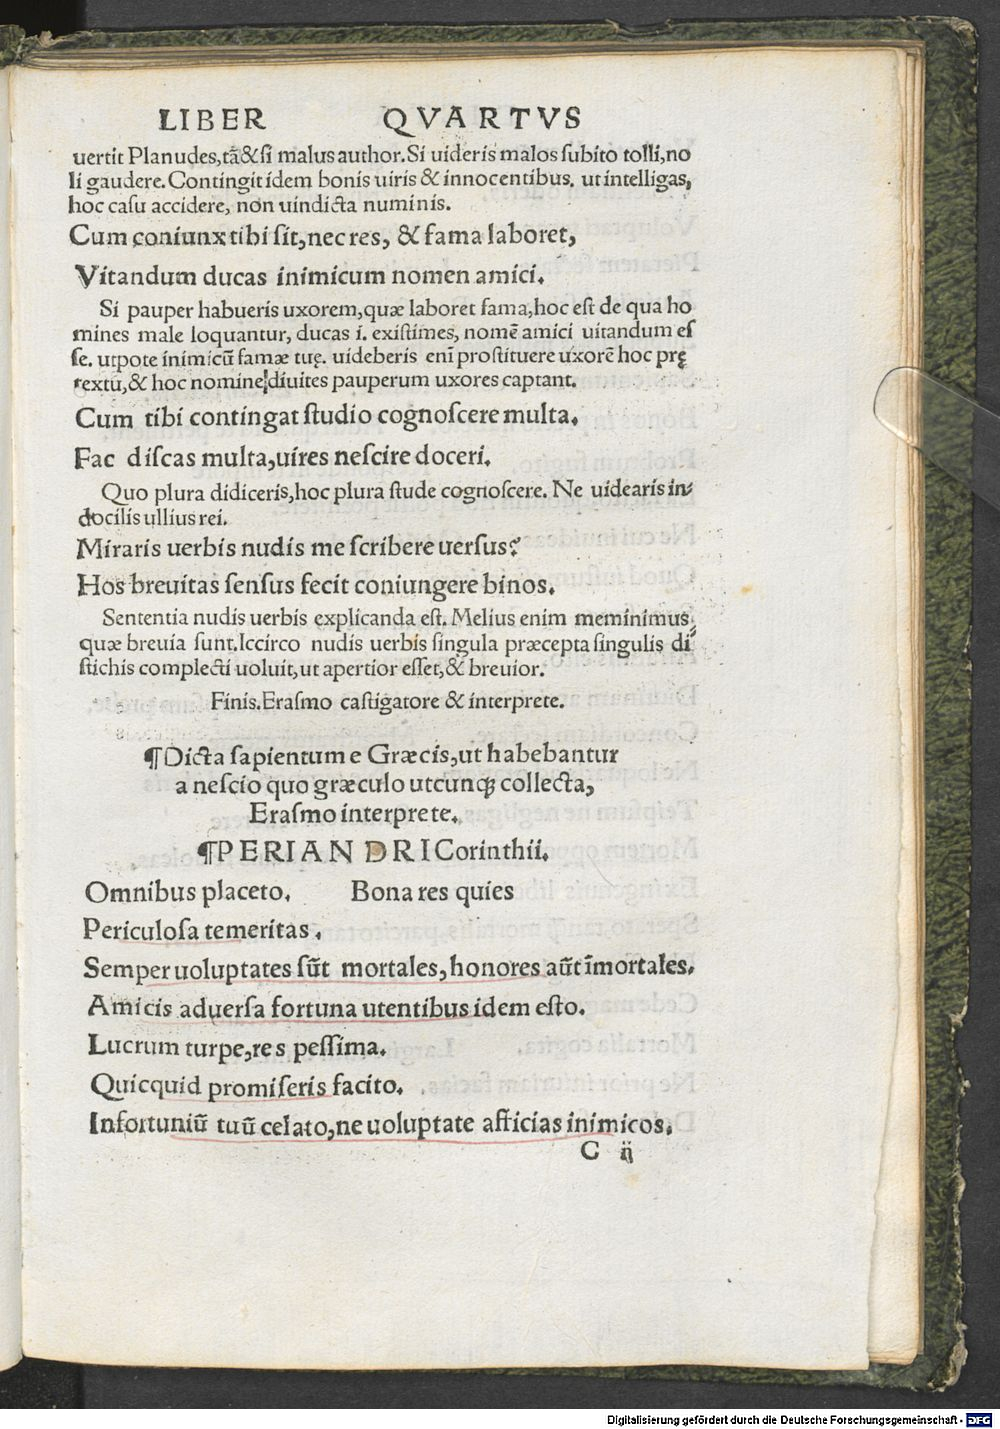 LIBER QVARTVS
uertit Planudes,tã&si malus author.Si uideris malos subito tolli,no
li gaudere.Contingit idem bonis uiris & innocentibus. ut intelligas,
hoc casu accidere, non uindicta numinis.
Cum coniunx tibi sit,nec res, & fama laboret,
Vitandum ducas inimicum nomen amici.
Si pauper habueris uxorem,quæ laboret fama,hoc est de qua ho
mines male loquantur, ducas i. existimes, nomẽ amici uitandum es
se. utpote inimicũ famæ tuę. uideberis enĩ prostituere uxorẽ hoc prę
textu,& hoc nomine diuites pauperum uxores captant.
Cum tibi contingat studio cognoscere multa.
Fac discas multa,uires nescire doceri.
Quo plura didiceris,hoc plura stude cognoscere. Ne uidearis in
docilis ullius rei.
Miraris uerbis nudis me scribere uersus?
Hos breuitas sensus fecit coniungere binos.
Sententia nudis uerbis explicanda est. Melius enim meminimus
quæ breuia sunt.Iccirco nudis uerbis singula præcepta singulis di
stichis complecti uoluit,ut apertior esset,& breuior.
Finis.Erasmo castigatore & interprete.
¶Dicta sapientum e Græcis,ut habebantur
a nescio quo græculo utcunqꝫ collecta,
Erasmo interprete.
¶PERIANDRI Corinthii.
Omnibus placeto. Bona res quies
Periculosa temeritas.
Semper uoluptates sũt mortales,honores aũt ĩmortales.
Amicis aduersa fortuna utentibus idem esto.
Lucrum turpe,res pessima.
Quicquid promiseris facito.
Infortuniũ tuũ celato,ne uoluptate afficias inimicos.
C ij
Digitalisierung gefördert durch die Deutsche Forschungsgemeinschaft - DFG